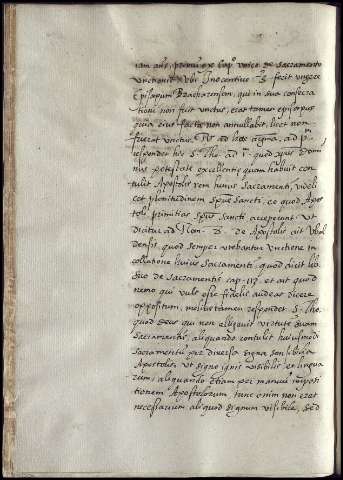 iam aut, primũ ex cap. unico de sacramento
unctione Ubi Innocentius 3. fecit ungere
Episcopum Bracharensem, qui in sua consecra
tione non fuit unctus, erat tamen episcopus
quia eius facta non annullabat, licet non
fuerat unctus. ad hæc ad pm
respondet hic S. Tho. ad 1. quod xpus Domi
nus potestate excellentiæ quam habuit con
tulit Apostolis rem huius Sacramenti, videli
cet plenitudinem Spus Sancti, eo quod Apos
toli primitias Spus Sancti acceperunt. Ut
dicitur ad Rom. 8. de Apostolis ait Wal
densis, quod semper utebantur unctione in
collatione huius Sacramenti, quod dicit lib.
suo de Sacramentis cap. 113. et ait quod
nemo, qui vult esse fidelis audeat dicere
oppositum, melius tamen respondet S. Tho.
quod Deus qui non alligavit virtutẽ suam
Sacramentis, aliquando contulit huiusmodi
Sacramentũ per diversa signa sensibilia
Apostolis, ut signo ignis visibilis, et lingua
rum, aliquando etiam per manuũ imposi
tionem Apostolorum tunc enim non erat
necessarium aliquod signum visibile, sed